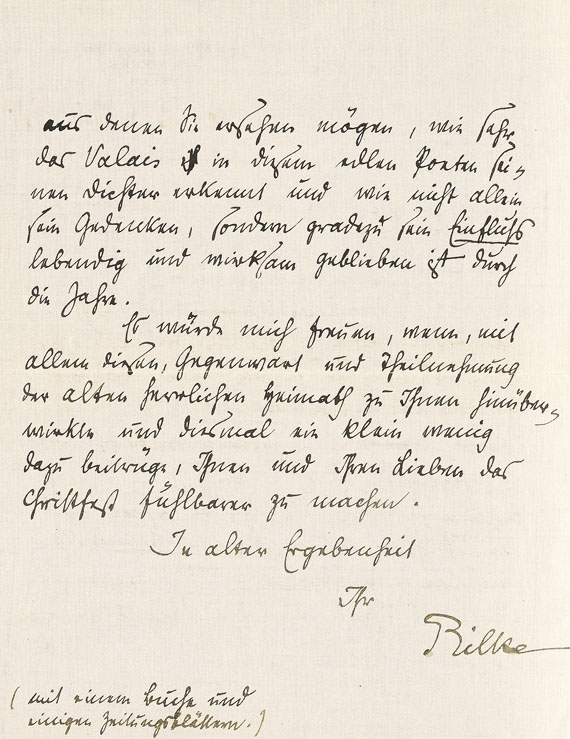 aus denen Sie ersehen mögen, wie sehr
das Valais in diesem edlen Poeten sei-
nen Dichter erkennt und wie nicht allein
sein Gedenken, sondern gradezu sein Einfluss
lebendig und wirksam geblieben ist durch
die Jahre.
Es würde mich freuen, wenn, mit
allem diesen, Gegenwart und Theilnehmung
der alten herrlichen Heimath zu Ihnen hinüber-
wirkte und diesmal ein klein wenig
dazu beitrüge, Ihnen und Ihren Lieben das
Christfest fühlbarer zu machen.
In alter Ergebenheit
Ihr
Rilke
(mit einem Buche und
einigen Zeitungsblättern.)